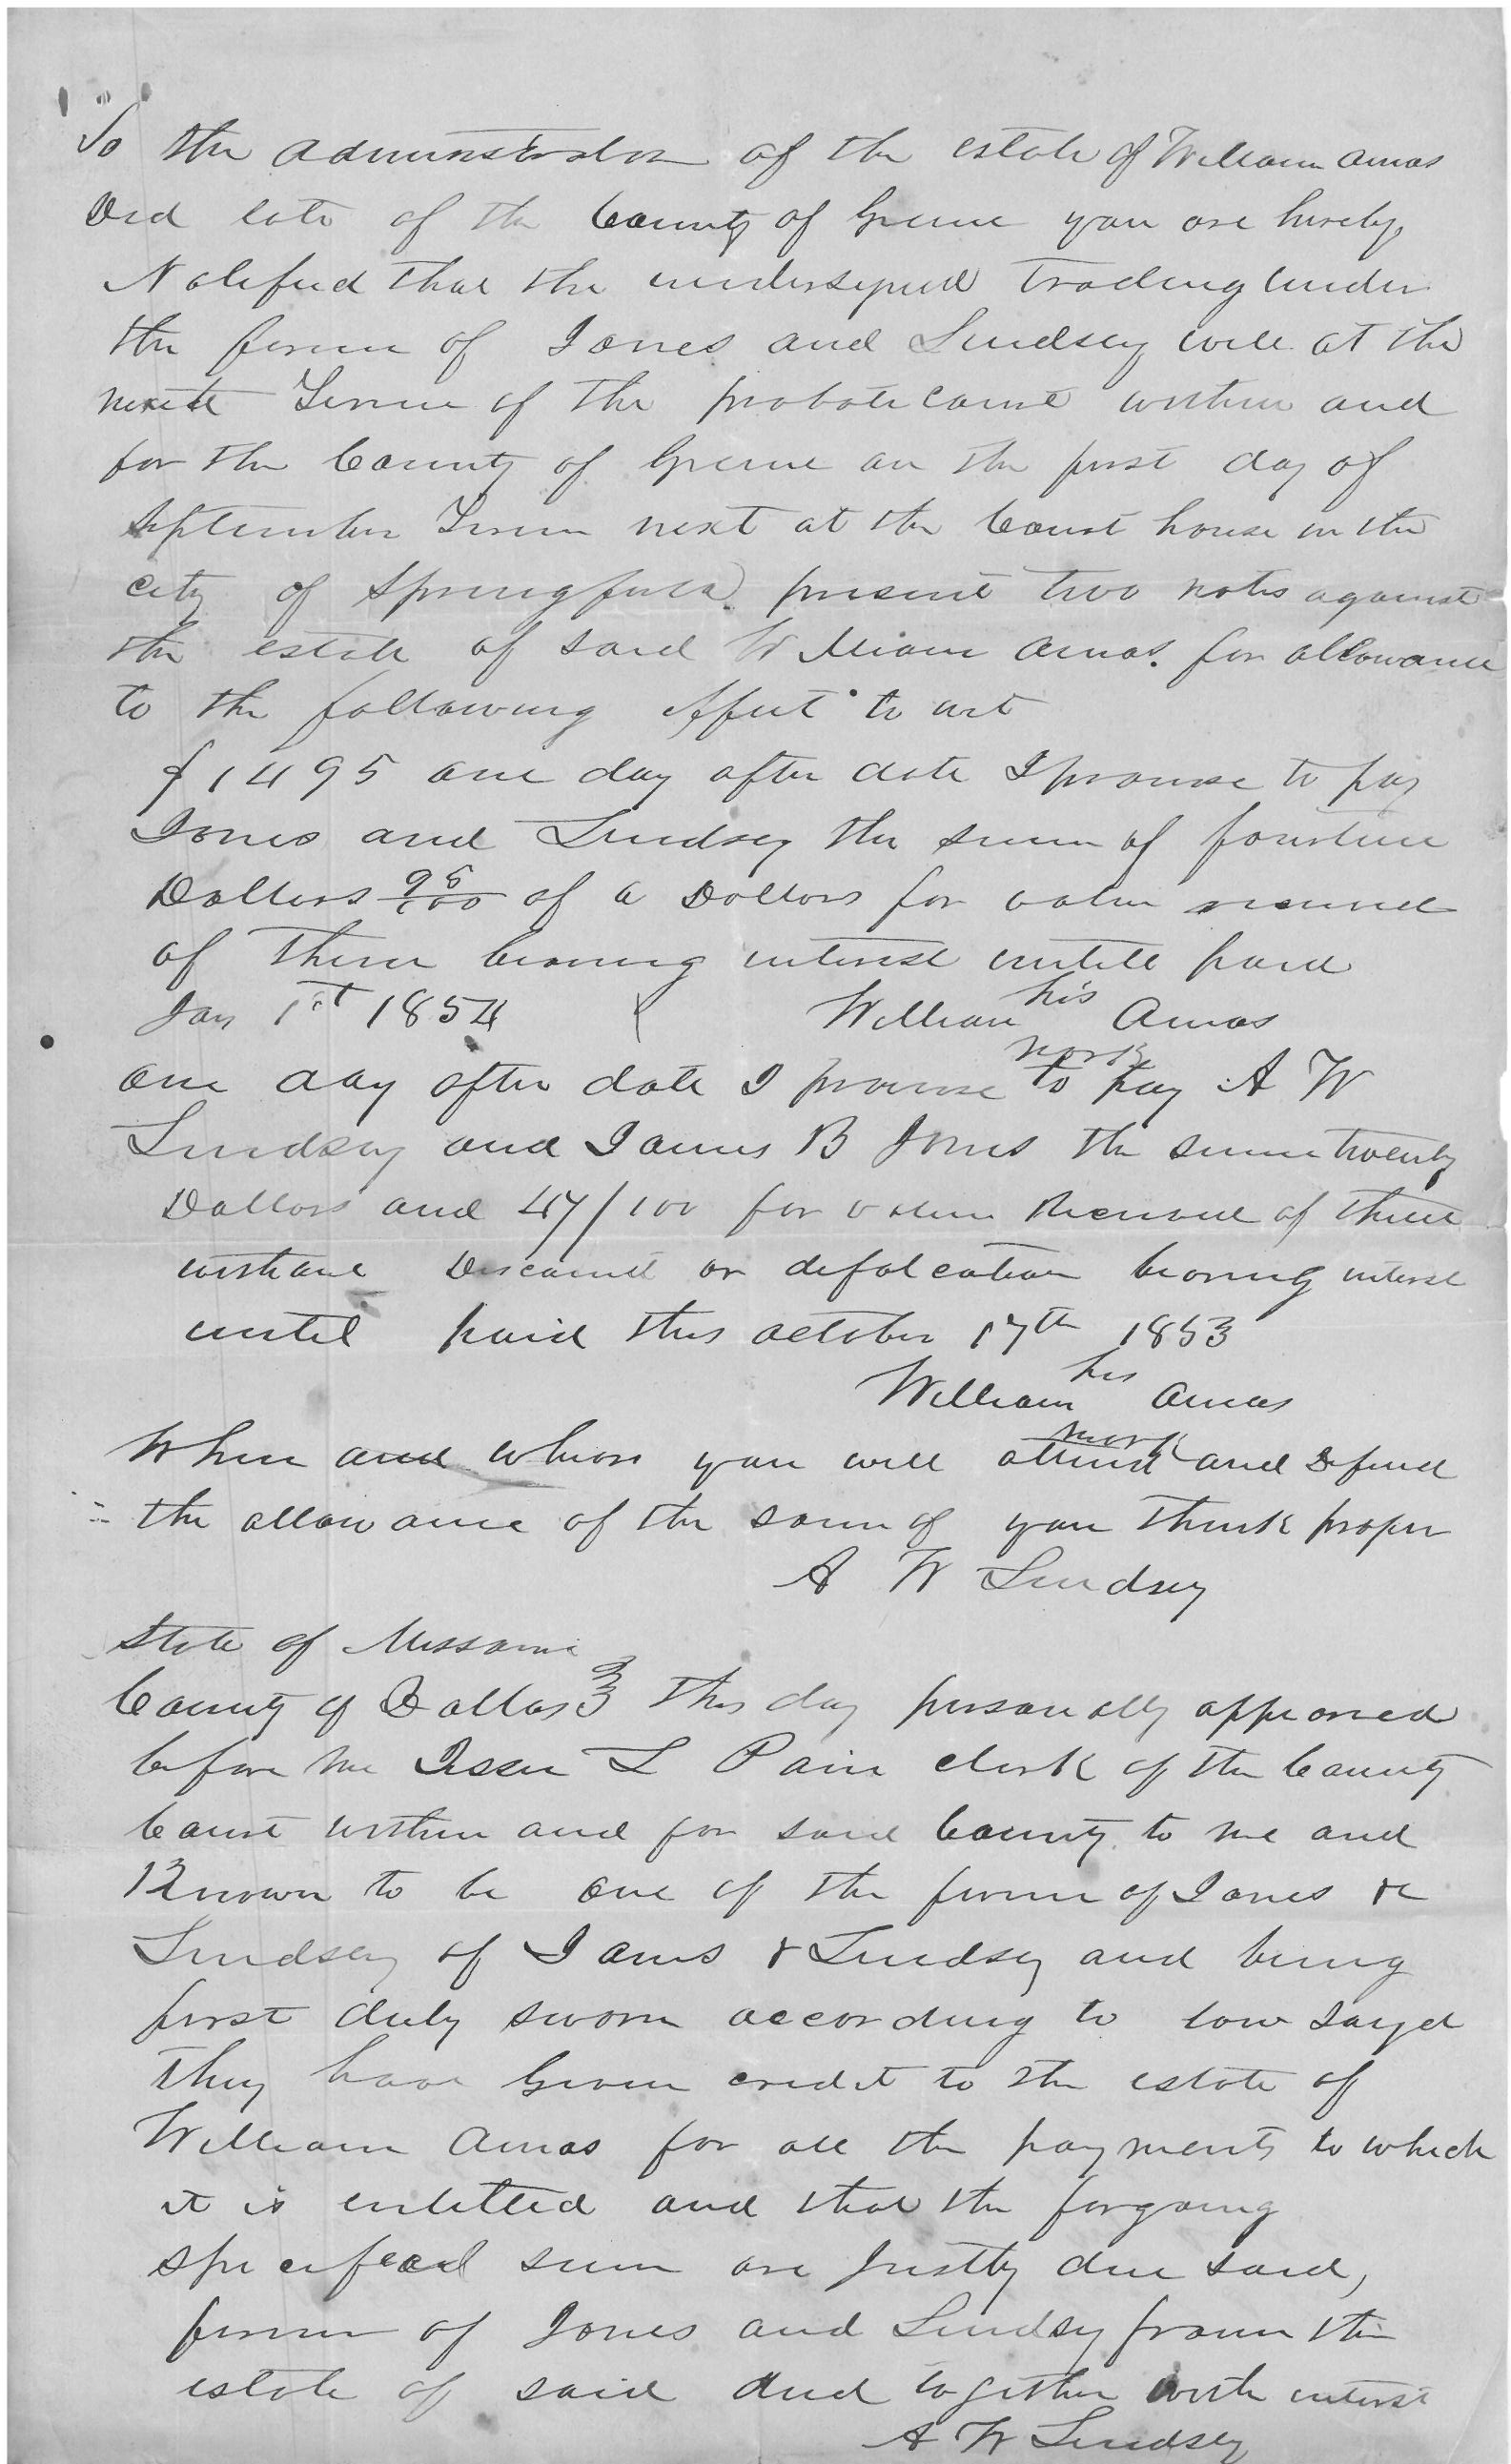 To the administrator of the estate of William Amos
Decd late of the County of Greene you are hereby
Notified that the undersigned trading under
the firm of Jones and Lindsey will at the
next Term of the probate Court within and
for the County of Greene on the first day of
September Term next at the Court house in the
city of Springfield present two notes against
the estate of said William Amos. for allowance
to the following Effect to wit
$1495 one day after date I promise to pay
Jones and Lindsey the sum of fourteen
Dollars 95/100 of a Dollars for value received
of them bearing interest untill paid
Jan 1st 1854 William his Amos
mark
one day after date I promise to pay A W
Lindsey and James B Jones the sum twenty
Dollars and 47/100 for value Received of them
without Discount or defalcation bearing interest
until paid this october 17th 1853
his
William Amos
mark
When and where you will attend and Defend
the allowance of the same if you think proper
A W Lindsey
State of Missouri
County of Dallas this day personally appeared
before me Jesse L Pain clerk of the County
Court within and for said County to me and
Known to be one of the firm of Jones &
Lindsey of Jones & Lindsey and being
first duly sworn according to law sayd
they have Given credit to the estate of
William Amos for all the payments to which
it is entitled and that the forgoing
specified sum are justly due said,
firm of Jones and Lindsey from the
estate of said decd together with interest
A W Lindsey